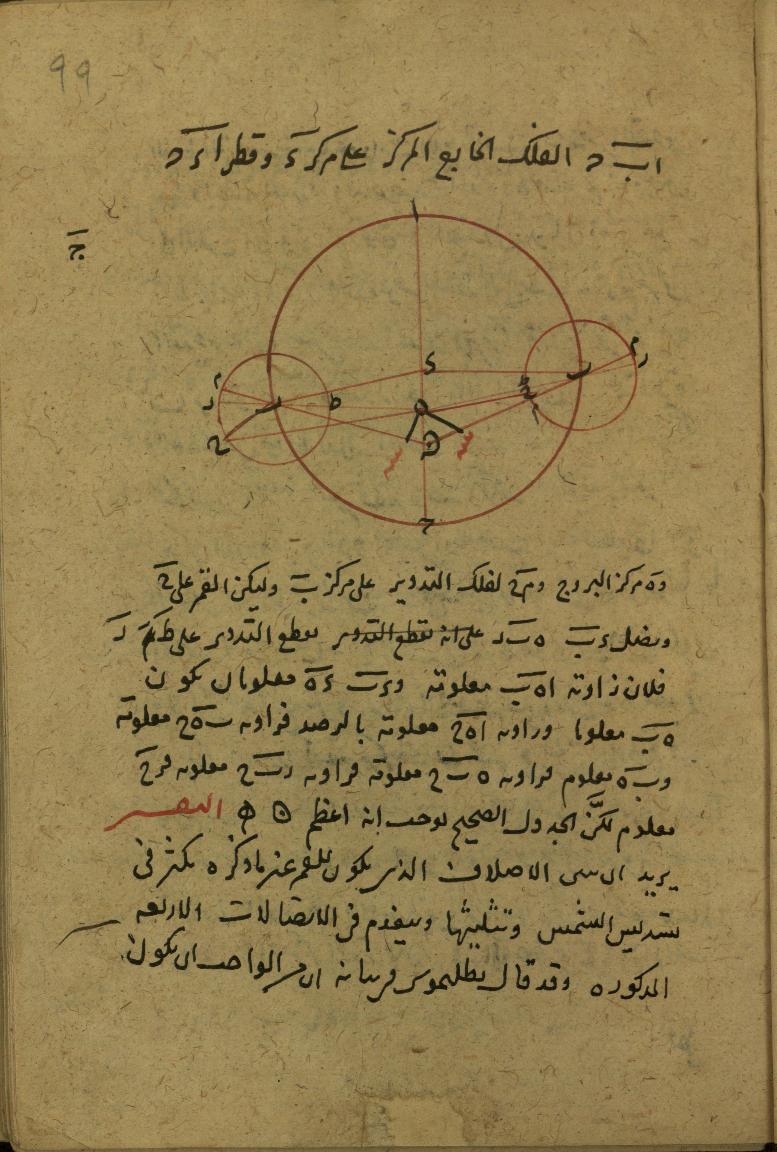 99
اب ح الفلك الخارج المركز على مركز ء وقطر اءح
ج
ا
ء
ب
ب
م
ر
ط
ح
ه
ح
وه مركز البروج ومح لفلك التدوير على مركز ب وليكن القمر على ح
ونصل ءب ه ب ر على انه يقطع التدوير يقطع التدوير على ط
فلان زاوية اهب معلومة وءب ءه معلومان يكون
هب معلوما وزاوية اهح معلومة بالرصد فزاوية بهح معلومة
وب ه معلوم فزاوية ه ب ح معلومة فزاوية رب ح معلومة فرح
معلوم لكن الجدول الصحيح يوجب انه اعظم التفسير
يريد ان يبين الاختلاف الذى يكون للقمر عند ما ذكره يكثر فى
تسديس الشمس وتثليثها وسيقدم فى الاتصالات الاربعة
المذكورة وقد قال بطلميوس الواجب ان يكون